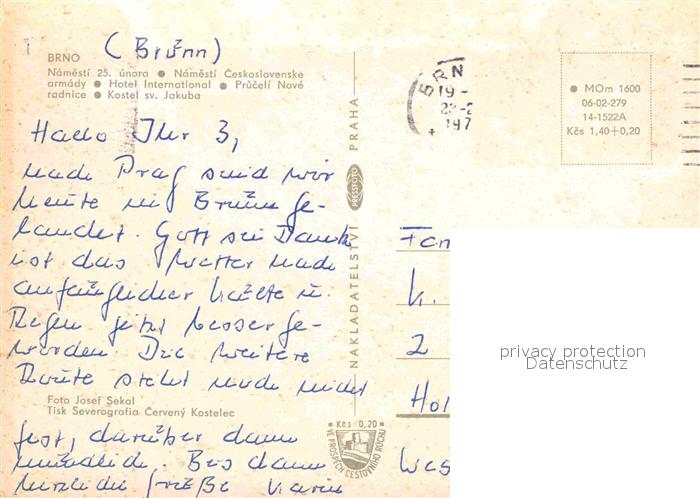 ( Brünn)
BRNO
Náměstí 25. února ● Náměstí Československe
armády ● Hotel International ● Průčelí Nové
radnice ● Kostel sv. Jakuba
Hallo Ihr 3,
nach Prag sind wir
heute in Brünn ge-
landet. Gott sei Dank
ist das Wetter nach
anfänglicher Kälte u.
Regen jetzt besser ge-
worden. Die weitere
Route steht noch nicht
Foto Josef Sekal
Tisk Severografia Červený Kostelec
fest, darüber dann
mündlich. Bis dann
herzliche Grüße Karin
NAKLADATELSTVÍ PRESSFOTO PRAHA
● Kčs 0,20 ●
VE PROSPĚCH CESTOVNÍHO RUCHU
BRN
19 -
197
● MOm 1600
06-02-279
14-1522A
Kčs 1,40+0,20
Fam
K.
2
Hol
Wes
privacy protection
Datenschutz